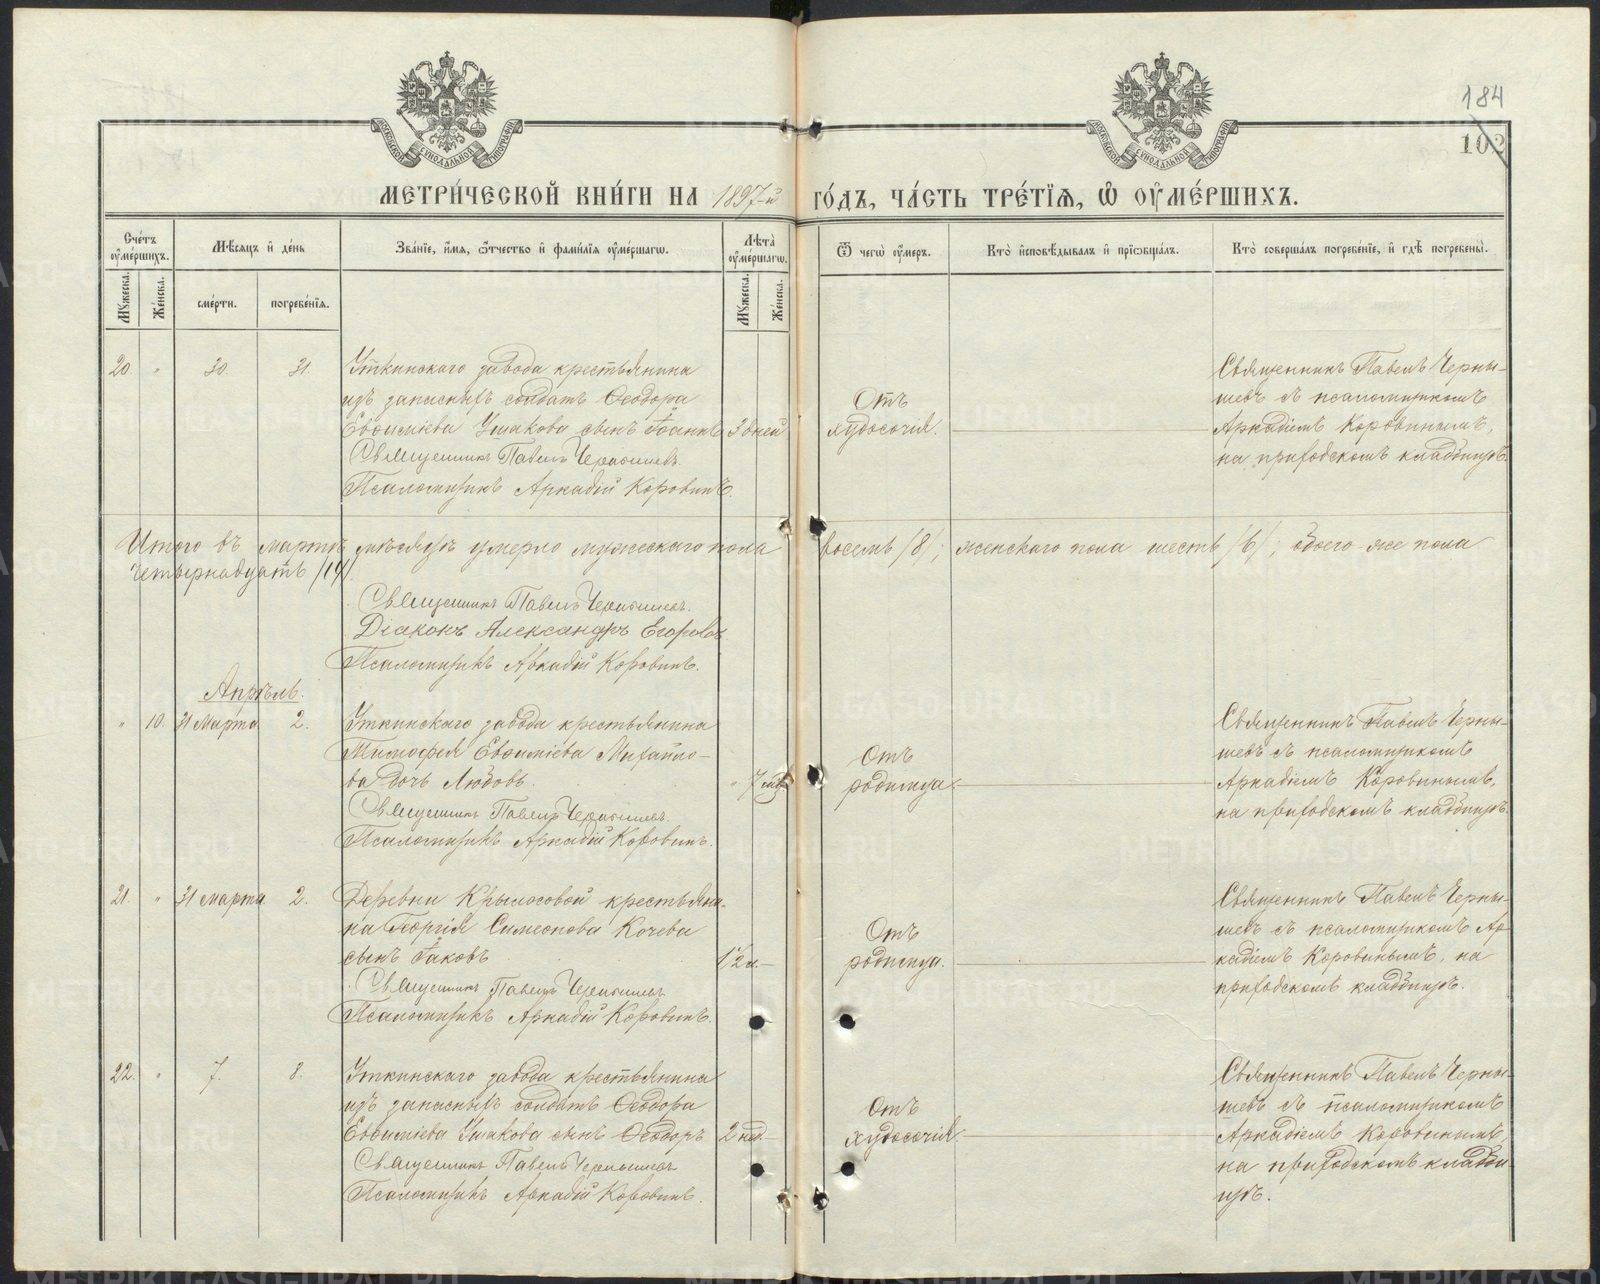 184
102
МЕТРИ́ЧЕСКОЙ КНИ́ГИ НА 1897-й ГО́ДЪ, ЧА́СТЬ ТРЕ́ТЇѦ, Ѽ ОУ҆МЕ́РШИХЪ.
Сче́тъ оу҆ме́ршихъ.
Мѣ́сѧцъ и҆ де́нь
Зва́нїе, и҆́мѧ, ѻ҆́тчество и҆ фами́лїѧ оу҆ме́ршагѡ.
Лѣ́та оу҆ме́ршагѡ.
Ѿ чегѡ̀ оу҆́меръ.
Кто̀ и҆сповѣ́дывалъ и҆ прїѡбща́лъ.
Кто̀ соверша́лъ погребе́нїе, и҆ гдѣ̀ погребены̀.
Мꙋ́жеска.
Же́нска.
сме́рти.
погребе́нїѧ.
Мꙋ́жеска.
Же́нска.
20. " 30. 31. Уткинскаго завода крестьянина
изъ запасныхъ солдатъ Ѳеодора
Евѳиміева Ушакова сынъ Іоаннъ 3 дней
Священникъ Павелъ Чернышевъ.
Псаломщикъ Аркадій Коровинъ.
Отъ
худосочія.
Священникъ Павелъ Черны-
шевъ съ псаломщикомъ
Аркадіемъ Коровинымъ,
на приходскомъ кладбищѣ.
Итого въ мартѣ мѣсяцѣ умерло мужескаго пола восемь /8/; женскаго пола шесть /6/; обоего-же пола
четырнадцать /14/.
Священникъ Павелъ Чернышевъ.
Діаконъ Александръ Егоровъ
Псаломщикъ Аркадій Коровинъ.
Апрѣль.
" 10. 31 Марта. 2. Уткинскаго завода крестьянина
Тимофея Евѳиміева Михайло-
ва дочь Любовь. " 7 мѣ.
Священникъ Павелъ Чернышевъ.
Псаломщикъ Аркадій Коровинъ.
Отъ
родимца.
Священникъ Павелъ Черны-
шевъ съ псаломщикомъ
Аркадіемъ Коровинымъ,
на приходскомъ кладбищѣ.
21. " 31 марта 2. Деревни Крылосовой крестьяни-
на Георгія Симеонова Кочева
сынъ Іаковъ 1 1/2 м.
Священникъ Павелъ Чернышевъ
Псаломщикъ Аркадій Коровинъ.
Отъ
родимца.
Священникъ Павелъ Черны-
шевъ съ псаломщикомъ Ар-
кадіемъ Коровинымъ, на
приходскомъ кладбищѣ.
22. " 7. 8. Уткинскаго завода крестьянина
изъ запасныхъ солдатъ Ѳеодора
Евѳиміева Ушакова сынъ Ѳеодоръ 2 нед.
Священникъ Павелъ Чернышевъ
Псаломщикъ Аркадій Коровинъ.
Отъ
худосочія.
Священникъ Павелъ Черны-
шевъ съ псаломщикомъ
Аркадіемъ Коровинымъ,
на приходскомъ кладби-
щѣ.